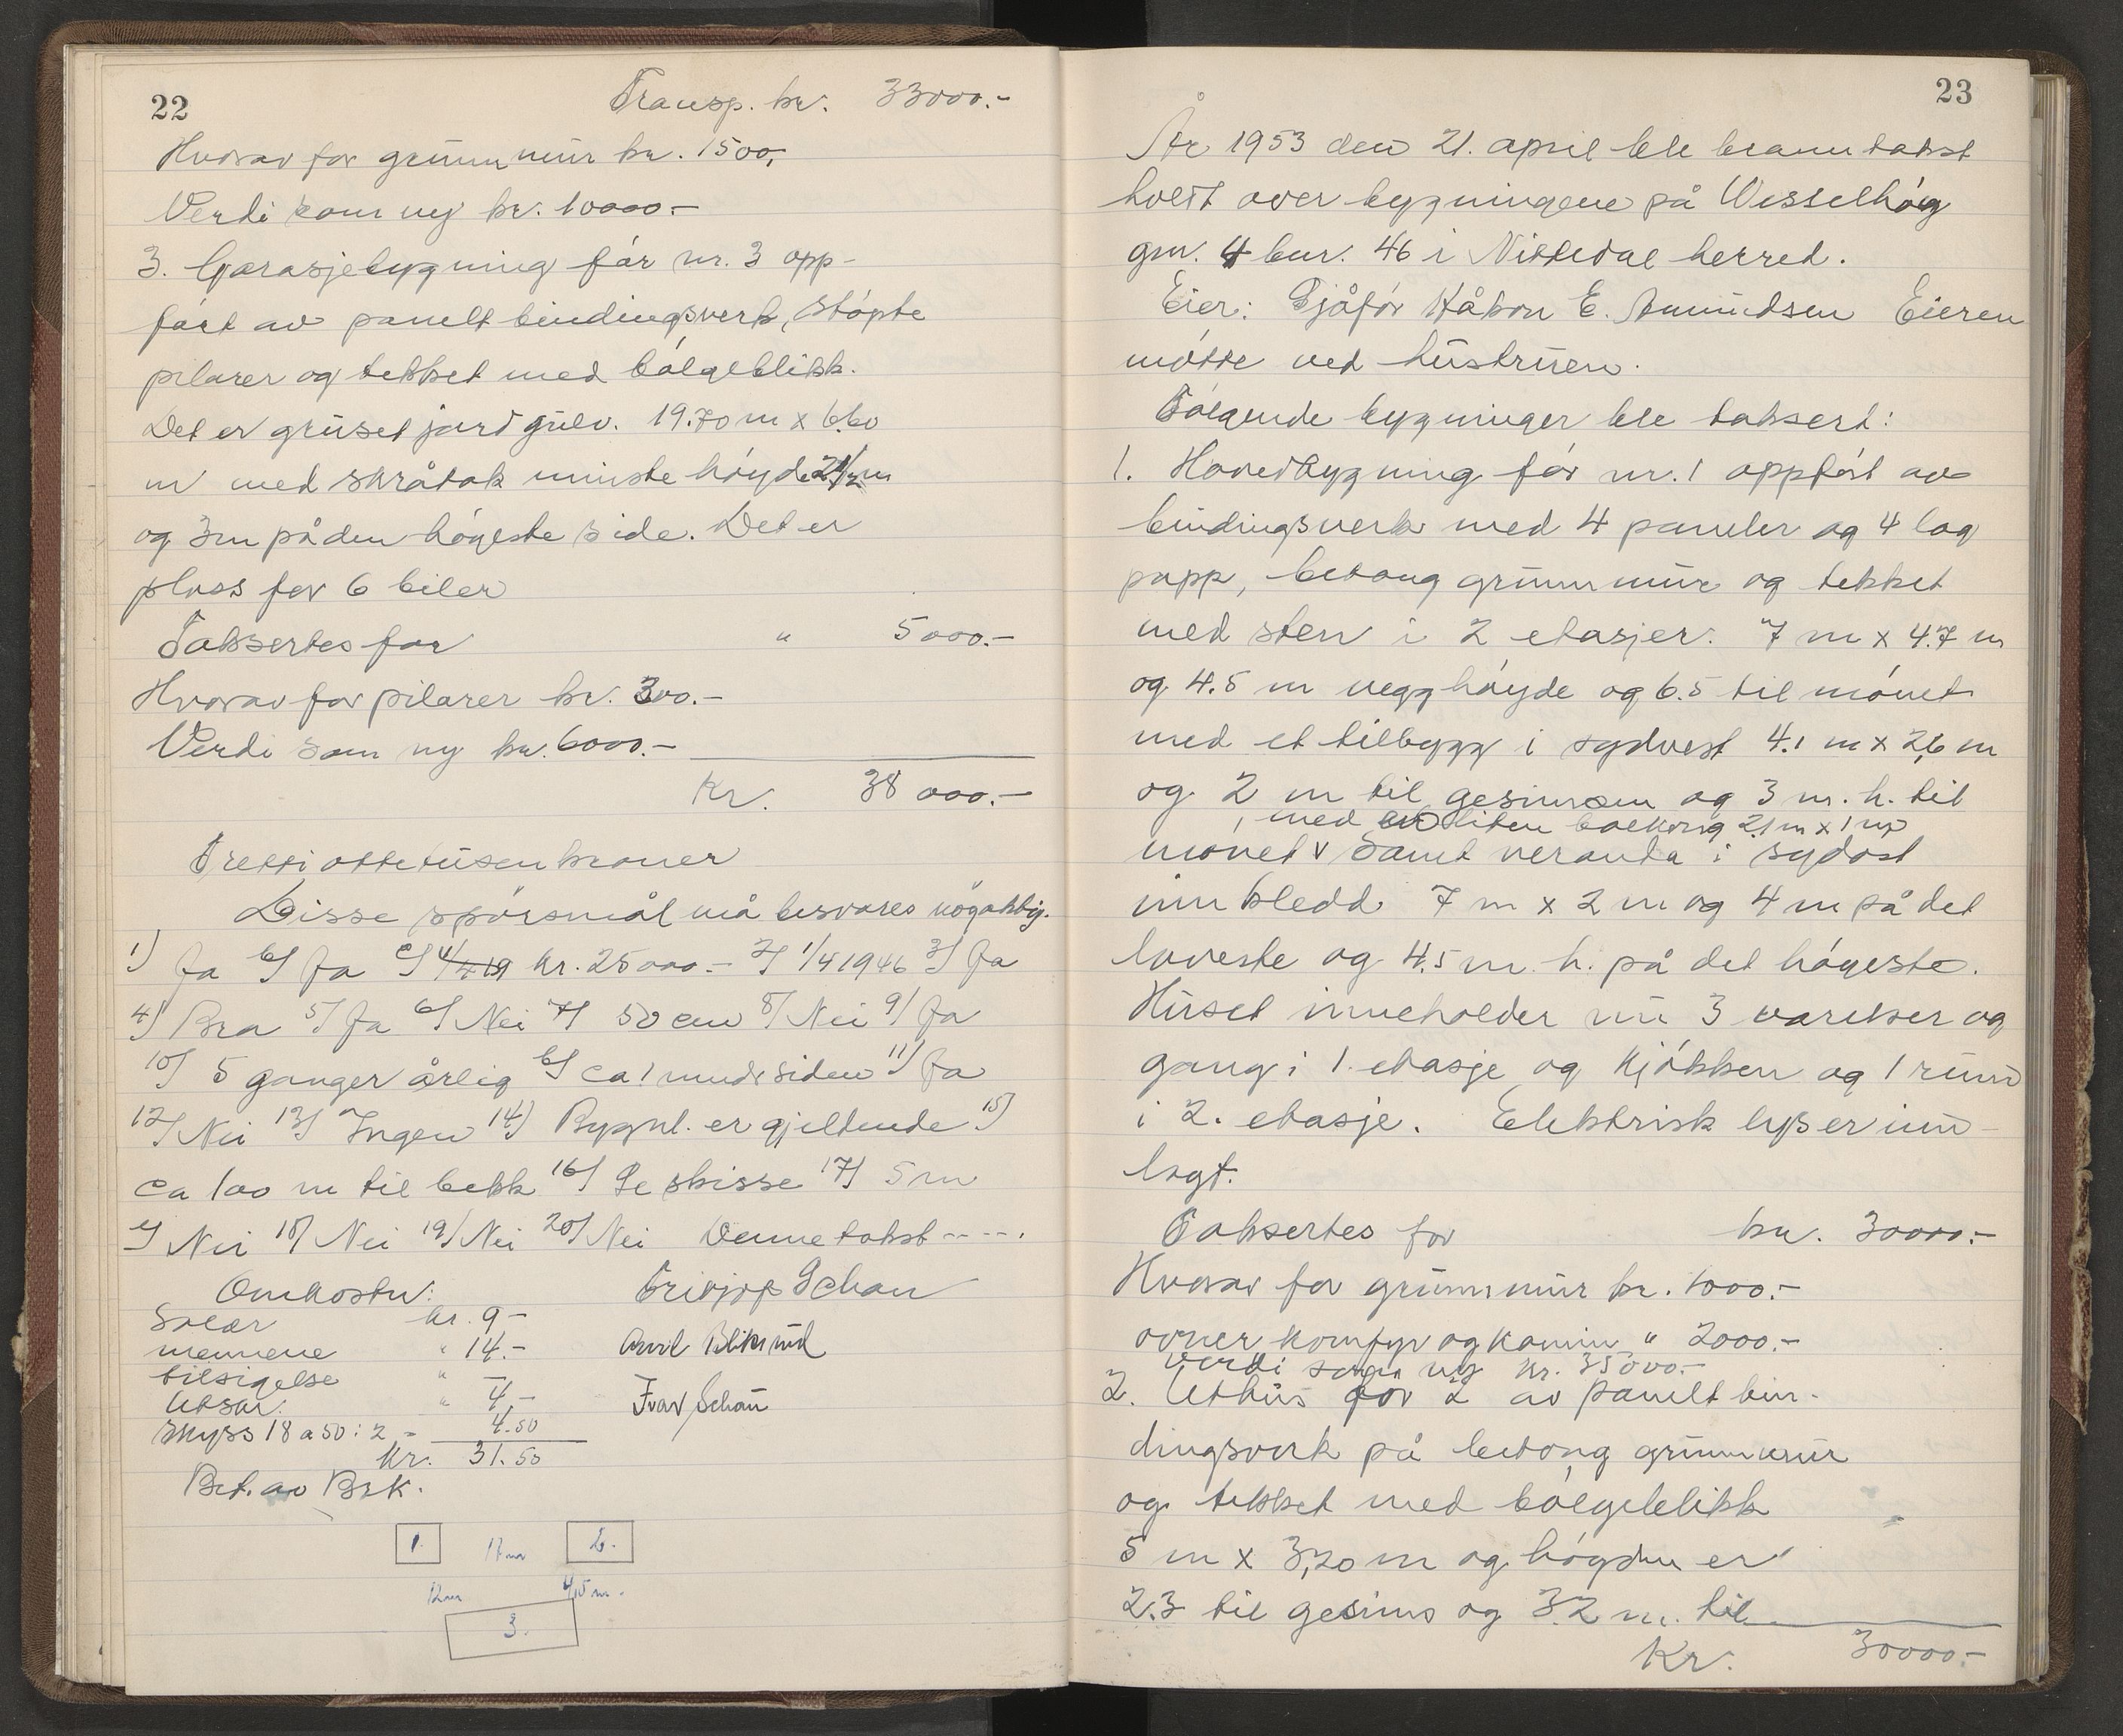 22
Transp. kr. 33000.-
Hvorav for grunnmur kr. 1500,-
Verdi som ny kr. 10000.-
3. Garasjebygning får nr. 3 opp-
ført av panelt bindingsverk, støpte
pilarer og tekket med bølgeblikk.
Det er gruset jord gulv. 19.70 m x 6.60
m med skråtak minste høyde 2 1/2 m
og 3m på den høgeste side. Det er
plass for 6 biler
Taksertes for " 5000.-
Hvorav for pilarer kr. 300.-
Verdi som ny kr. 6000.-
Kr. 38 000.-
Trettiottetusen kroner
Disse spørsmål må besvares nøgaktig.
1) Ja b) Ja c) kr. 25000.- 2) 1/4 1946 3) Ja
4) Bra 5) Ja 6) Nei 7) 50 cm 8) Nei 9) Ja
10) 5 ganger årlig b) ca 1 mnd siden 11) Ja
12) Nei 13) Ingen 14) Bygnl. er gjeldende 15)
ca 100 m til bekk 16) Se skisse 17) 5 m
Nei 18) Nei 19) Nei 20) Nei Denne takst - - - - .
Omkostn:
Fritjof Schau
Salær kr. 9 -
mennene " 14.-
tilsigelse " -
Utskr. " 4 -
Skyss 18 a 50 : 2 - 4.50
Kr. 31.50
Ivar Schau
Bet. av Brk.
1. 17 m 2.
12 m 4,5 m.
3.
23
År 1953 den 21. april ble branntakst
holdt over bygningene på Wesselhøg
gnr. 4 bnr. 46 i Nittedal herred.
Eier: Sjåfør Håkon E. Amundsen Eieren
møtte ved hustruen.
Følgende bygninger ble taksert:
1. Hovedbygning får nr. 1 oppført av
bindingsverk med 4 paneler og 4 lag
papp, betong grunnmur og tekket
med sten i 2 etasjer. 7 m x 4.7 m
og 4.5 m vegghøyde og 6.5 til mønet
med et tilbygg i sydvest 4.1 m x 2,6 m
og 2 m til gesimsen og 3 m. h. til
, med en liten balkong 2,1 m x 1 m
mønet v samt veranda i sydøst
innkledd 7 m x 2 m og 4 m på det
laveste og 4.5 m. h. på det høgeste.
Huset inneholder nu 3 værelser og
gang i 1. etasje og kjøkken og 1 rum
i 2. etasje. Elektrisk lys er inn-
lagt.
Taksertes for kr. 30000.-
Hvorav for grunnmur kr. 1000.-
ovner komfyr og kamin " 2000.-
Verdi som ny kr. 35000.-
2. Uthus for 2 av panelt bin-
dingsverk på betong grunnmur
og tekket med bølgeblikk
5 m x 3,20 m og høgden er
2.3 til gesims og 3.2 m. til
Kr. 30000.-